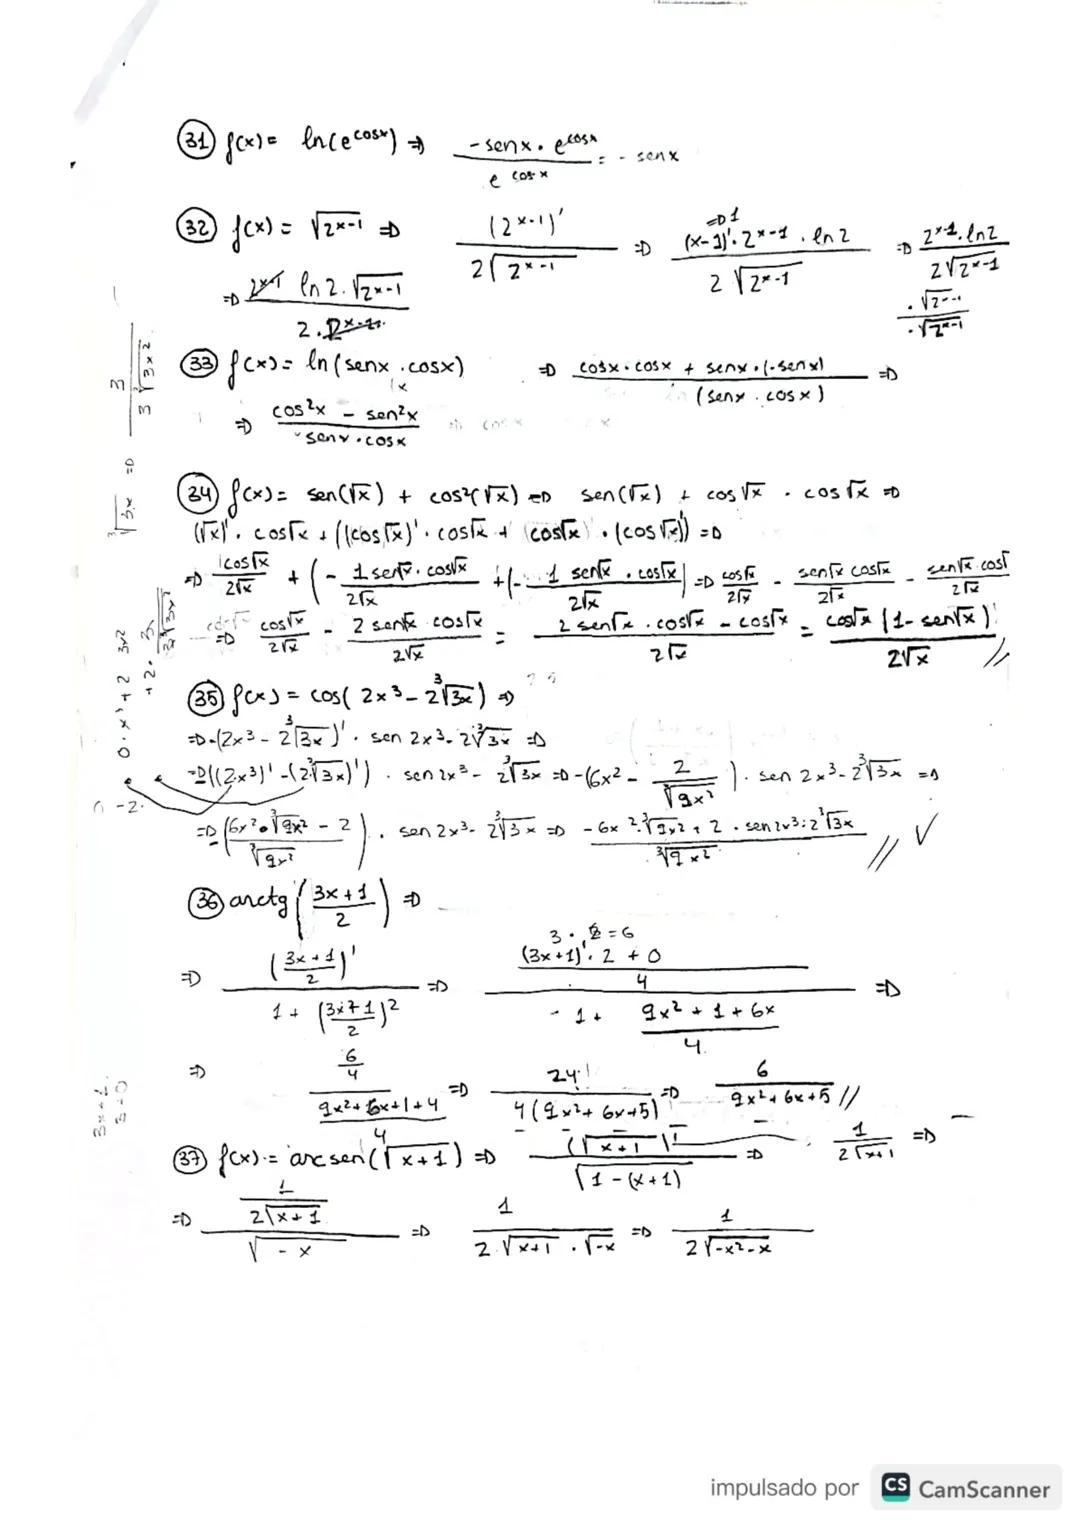 31 f(x) = ln(e^cosx) ⇒ (-senx · e^cosx)/(e^cosx) = - senx
32 f(x) = √(2^x-1) ⇒ (2^x-1)'/(2√(2^x-1)) ⇒ ((x-1)' · 2^x-1 · ln2)/(2√(2^x-1)) ⇒ (2^x-1 · ln2)/(2√(2^x-1))
⇒ 1
· √(2^x-1)/· √(2^x-1)
⇒ (2^x-1 ln2 · √(2^x-1))/(2 · 2^x-1)
33 f(x) = ln(senx · cosx) ⇒ (cosx · cosx + senx · (-senx))/(senx · cosx) ⇒
⇒ (cos²x - sen²x)/(senx · cosx)
34 f(x) = sen(√x) + cos²(√x) ⇒ sen(√x) + cos√x · cos√x ⇒
(√x)' · cos√x + ((cos√x)' · cos√x + cos√x · (cos√x)') ⇒
⇒ (1cos√x)/(2√x) + (- (1 sen√x · cos√x)/(2√x) + (- (1 sen√x · cos√x)/(2√x)) ⇒ cos√x/(2√x) - (sen√x cos√x)/(2√x) - (sen√x · cos√)/(2√x)
⇒ cos√x/(2√x) - (2 sen√x cos√x)/(2√x) = (2 sen√x · cos√x - cos√x)/(2√x) = (cos√x (1 - sen√x))/(2√x) //
35 f(x) = cos(2x³ - 2∛(3x)) ⇒
⇒ -(2x³ - 2∛(3x))' · sen 2x³ - 2∛(3x) ⇒
⇒ -((2x³)' - (2∛(3x))') · sen 2x³ - 2∛(3x) ⇒ -(6x² - 2/∛(9x²)) · sen 2x³ - 2∛(3x) ⇒
⇒ -((6x² · ∛(9x²) - 2)/∛(9x²)) · sen 2x³ - 2∛(3x) ⇒ (-6x² · ∛(9x²) + 2 · sen 2x³ - 2∛(3x))/∛(9x²) // ✓
36 arctg((3x+1)/2) ⇒
3 · 2 = 6
⇒ ((3x+1)/2)'/(1 + ((3x+1)/2)²) ⇒ (((3x+1)' · 2 + 0)/4)/(1 + (9x² + 1 + 6x)/4) ⇒
⇒ (6/4)/((9x² + 6x + 1 + 4)/4) ⇒ 24/(4(9x² + 6x + 5)) ⇒ 6/(9x² + 6x + 5) //
37 f(x) = arcsen(√(x+1)) ⇒ (√(x+1))'/√(1 - (x+1)) ⇒ 1/(2√(x+1)) ⇒
⇒ (1/(2√(x+1)))/√(-x) ⇒ 1/(2 · √(x+1) · √(-x)) ⇒ 1/(2√(-x²-x))
∛(3x) ⇒
3x+1
3+0
impulsado por CS CamScanner